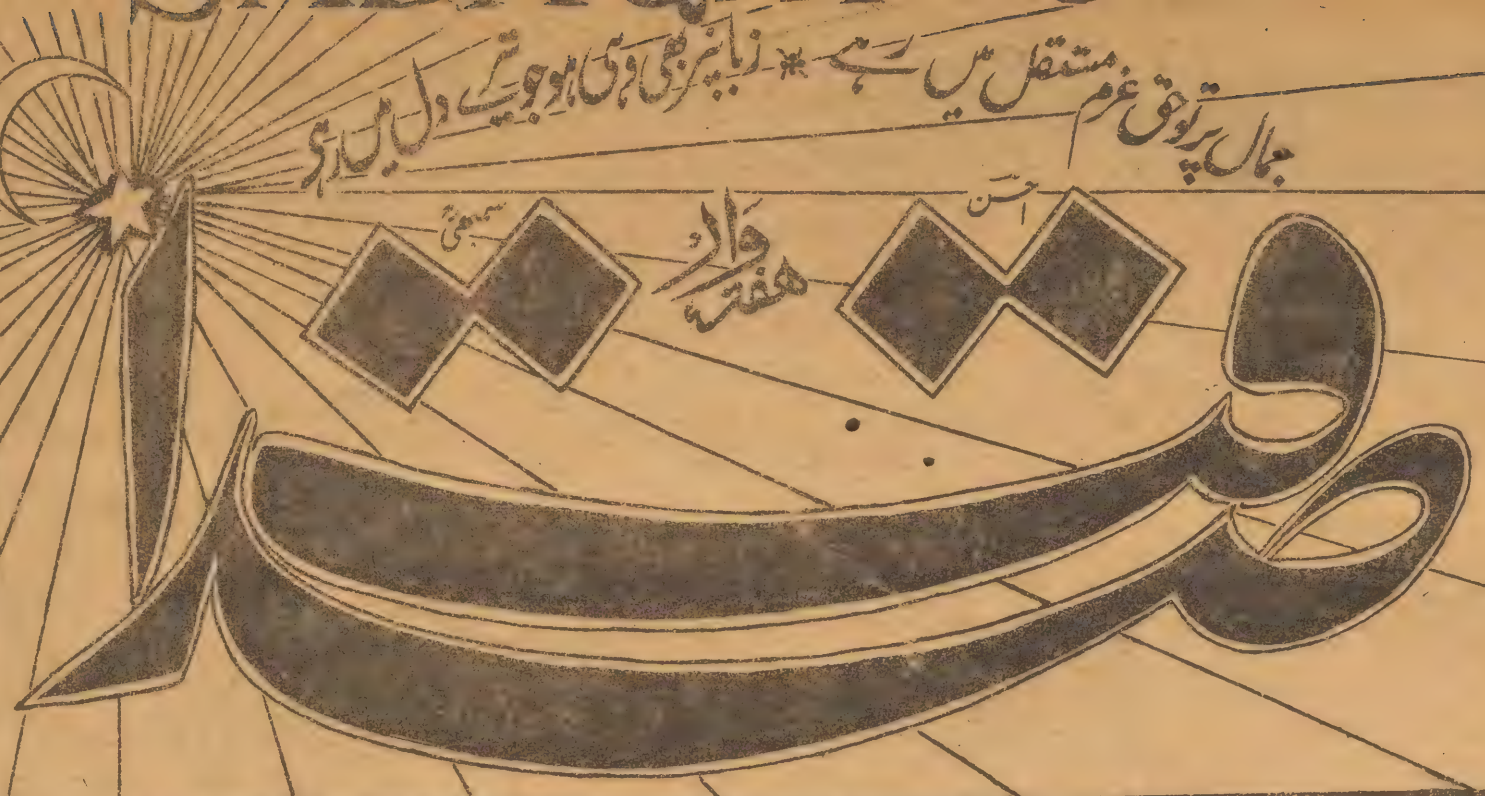 جمال پرتو حق عزم مستقل میں رہے * زباں پر بھی وہی ہو جو تیرے دل میں رہے
احسن
هفتہ وار
صداقت